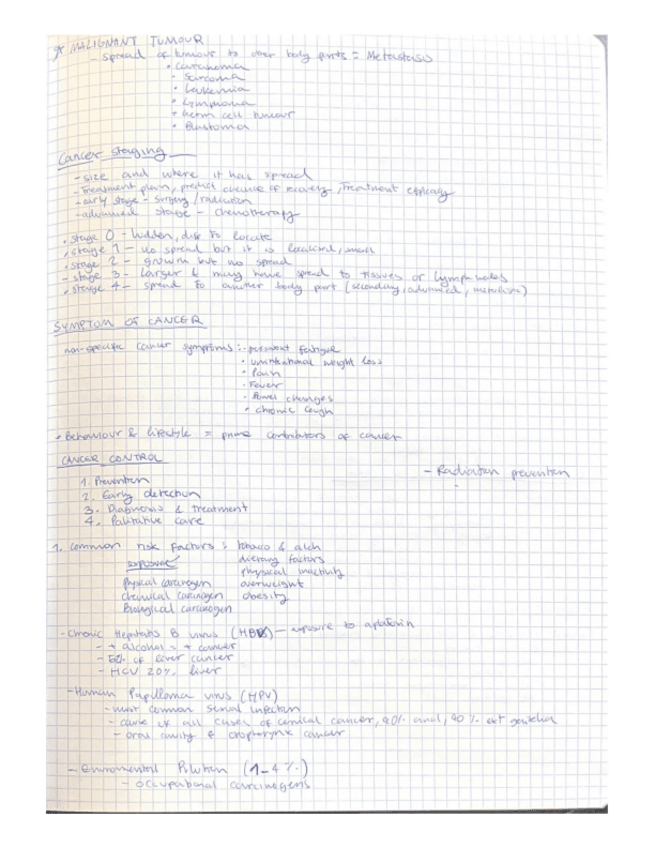 * MALIGNANT TUMOUR
- Spread of tumours to other body parts = Metastasis
• Carcinoma
• Sarcoma
• Leukemia
• Lymphoma
• Germ cell tumour
• Blastoma
Cancer staging
- size and where it has spread
- Treatment plan, predict chance of recovery, treatment efficacy
- early stage - surgery / radiation
- advanced stage - chemotherapy
• stage 0 - hidden, diff to locate
• stage 1 - no spread but it is localised, small
• stage 2 - growth but no spread
- stage 3 - Larger & may have spread to tissues or lymph nodes
• stage 4 - spread to another body part (secondary, advanced, metastasis)
SYMPTOM OF CANCER
non-specific cancer symptoms: - persistent fatigue
• unintentional weight loss
• Pain
• Fever
• Bowel changes
• chronic cough
• Behaviour & lifestyle = prime contributors of cancer
CANCER CONTROL
- Radiation prevention
1. Prevention
2. Early detection
3. Diagnosis & treatment
4. Palliative care
1. common risk factors: tobacco & alch
exposure dietary factors
physical inactivity
Physical carcinogen overweight
chemical carcinogen obesity
Biological carcinogen
- Chronic Hepatitis B virus (HBV) - exposure to aflatoxin
- + alcohol = + cancer
- % of liver cancer
- HCV 20% liver
- Human Papilloma virus (HPV)
- most common sexual infection
- cause of all cases of cervical cancer, 90% anal, 40% ext genitalia
- oral cavity & oropharynx cancer
- Enviromental Pollution (1-4%)
- occupational carcinogens